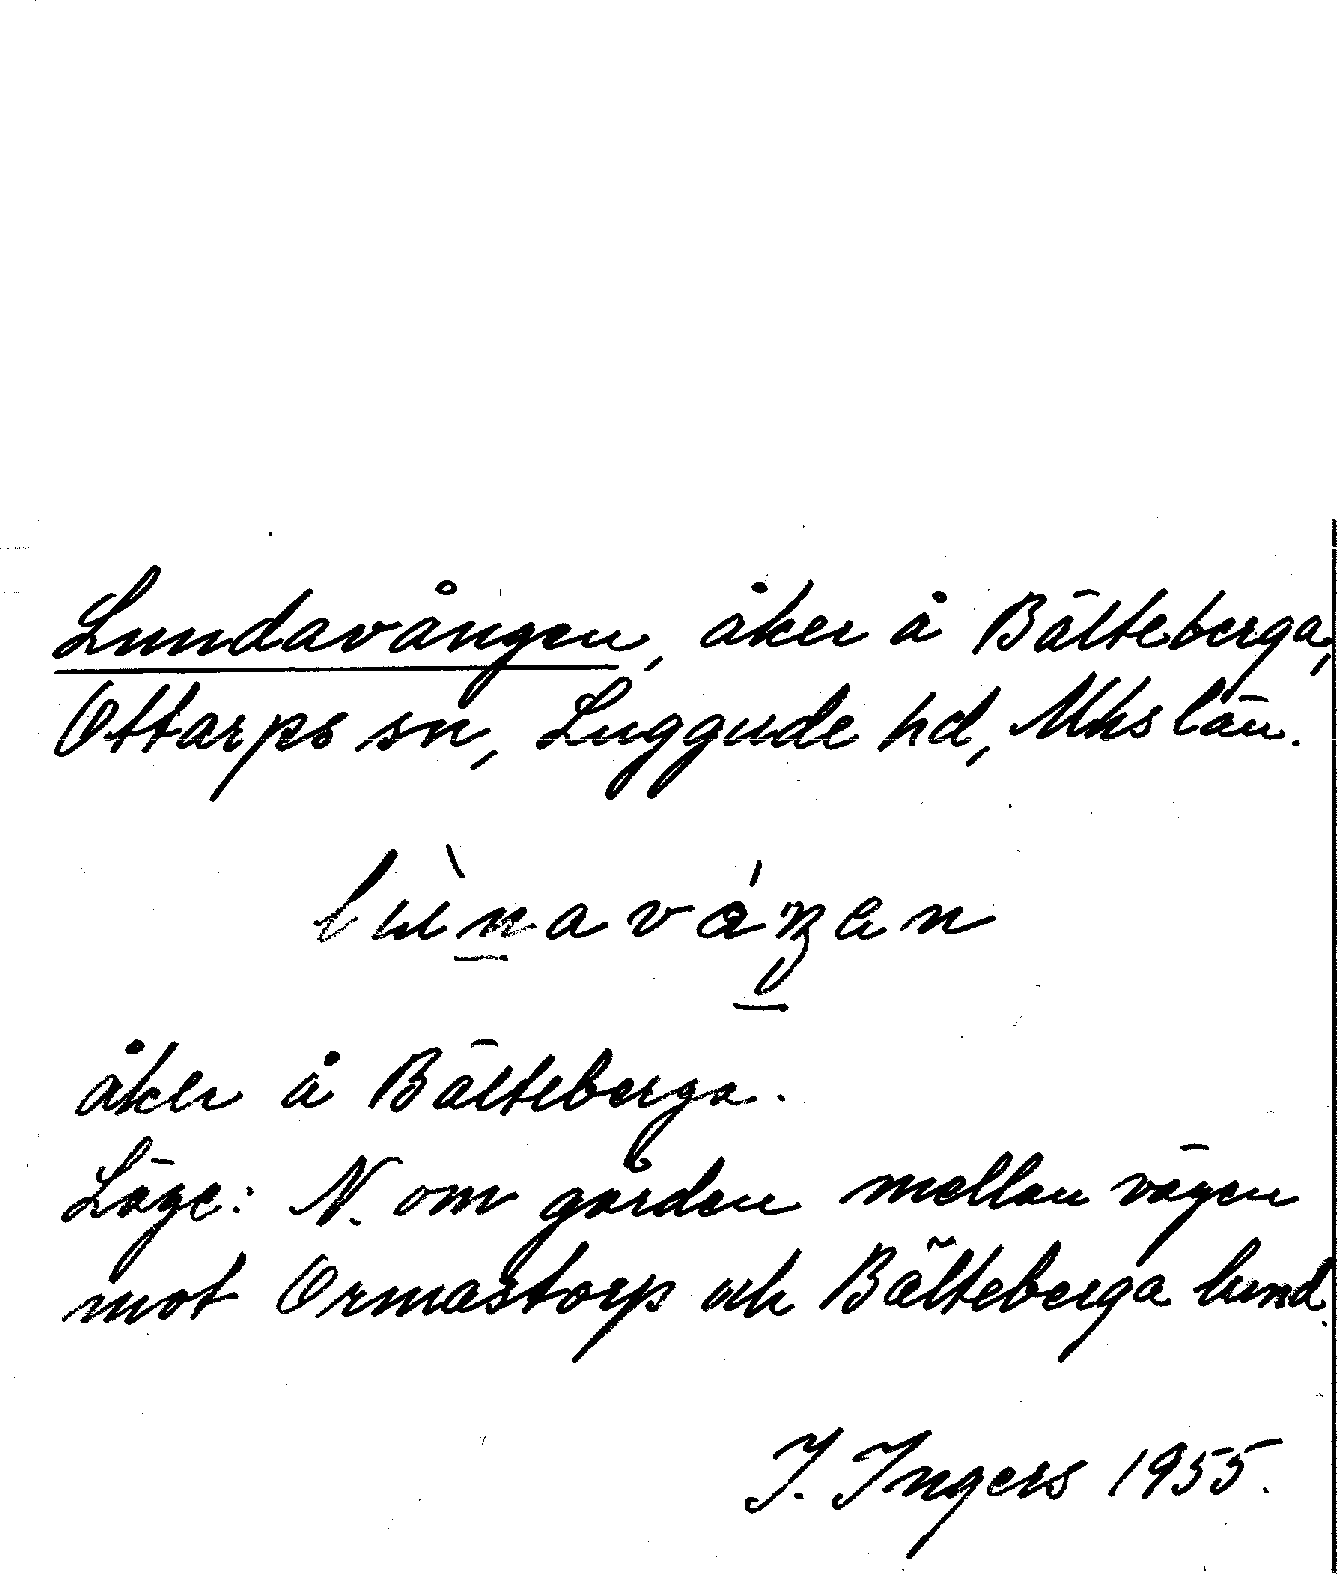 Lundavången, åker å Bälteberga,
Ottarps sn, Luggude hd, Mhs län.
åker å Bälteberga.
Läge: N. om gården mellan vägen
mot Ormastorp och Bälteberga lund.
I. Ingers 1955.